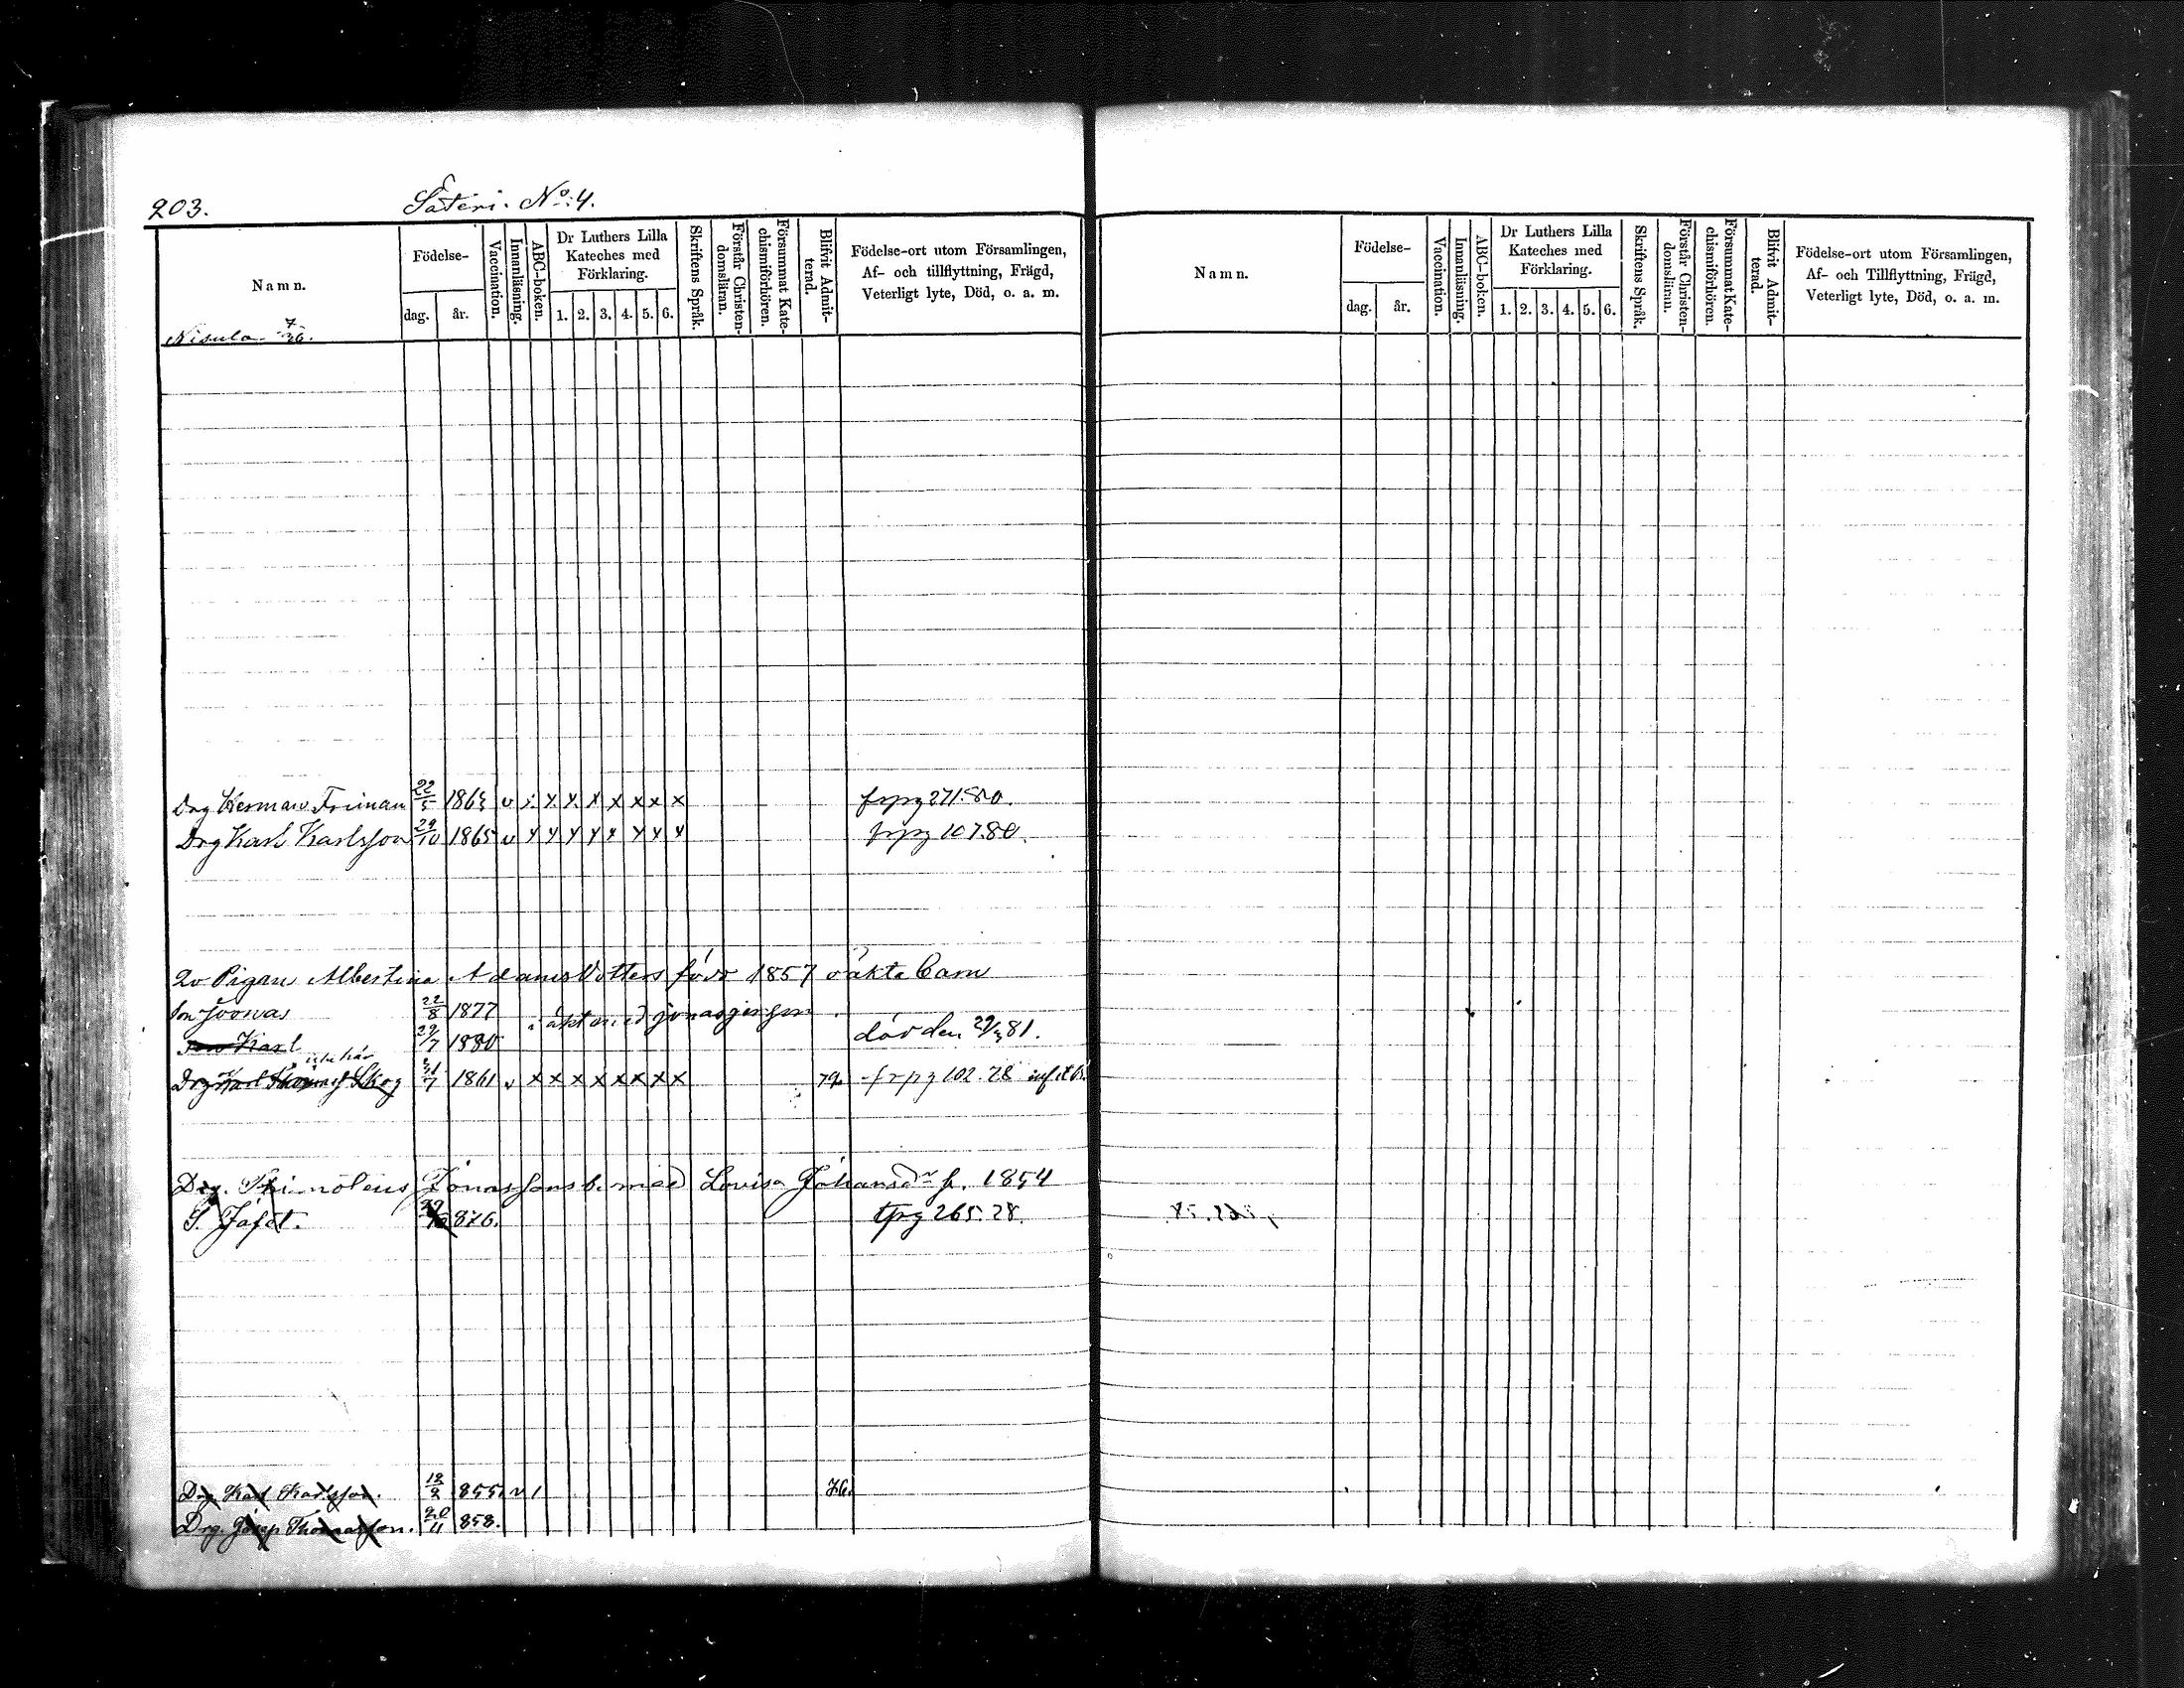 203. Säteri. No: 4.
Namn. Födelse- dag. år. Vaccination. Innanläsning. ABC-boken. Dr Luthers Lilla Kateches med Förklaring. 1. 2. 3. 4. 5. 6. Skriftens Språk. Förstår Christendomsläran. Försummat Katechismiförhören. Blifvit Admitterad. Födelse-ort utom Församlingen, Af- och tillflyttning, Frägd, Veterligt lyte, Död, o. a. m.
Nisula 7/26.
Drg Herman Friman 22/5 1863 v x x x x x x x x frpg 271.80.
Drg Karl Karlsson 29/10 1865 v x x x x x x x x frpg 107.80.
Pigan Albertina Adamsdotters född 1857 oäkta barn
son Joonas 22/8 1877
son Karl 29/7 1880 död den 29/3 81.
Drg Karl Skog 31/7 1861 v x x x x x x x x 79. frpg 102.28
Drg. Thimoteus Jonassons b. med Lovisa Johansdr f. 1854
S. Jafet. 876. tpg 265.28.
Drg Karl Karlsson. 18/2 855. v 1 76.
Drg. Josep Thomasson. 20/11 858.
Namn. Födelse- dag. år. Vaccination. Innanläsning. ABC-boken. Dr Luthers Lilla Kateches med Förklaring. 1. 2. 3. 4. 5. 6. Skriftens Språk. Förstår Christendomsläran. Försummat Katechismiförhören. Blifvit Admitterad. Födelse-ort utom Församlingen, Af- och Tillflyttning, Frägd, Veterligt lyte, Död, o. a. m.